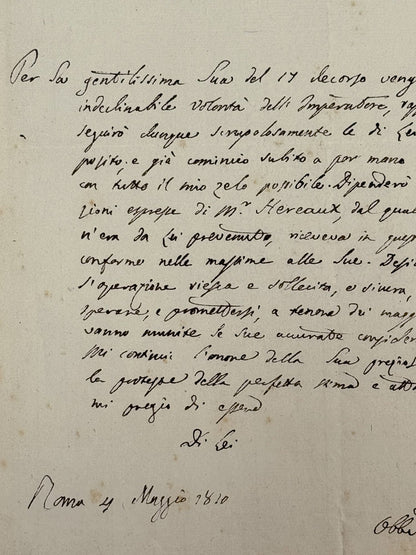 Per la gentilissima Sua del 17 decorso veng
indeclinabile volontà dell' Imperatore, rap
seguirò dunque scrupolosamente le di Lei
posito, e già comincio subito a por mano
con tutto il mio zelo possibile. Dipenderò
zioni espresse di M.r Hereaux, dal qual
n'era da Lei prevenuto, riceveva in quest
conforme nelle massime alle Sue. Desi
l'operazione riesca e sollecita, e sicura,
sperare, e promettersi, a tenore dei magg
vanno munite le sue accurate consider
Mi continui l'onore della Sua pregiat
le proteste della perfetta stima e att
mi pregio di essere
Di Lei
Roma 4 Maggio 1810
Obb